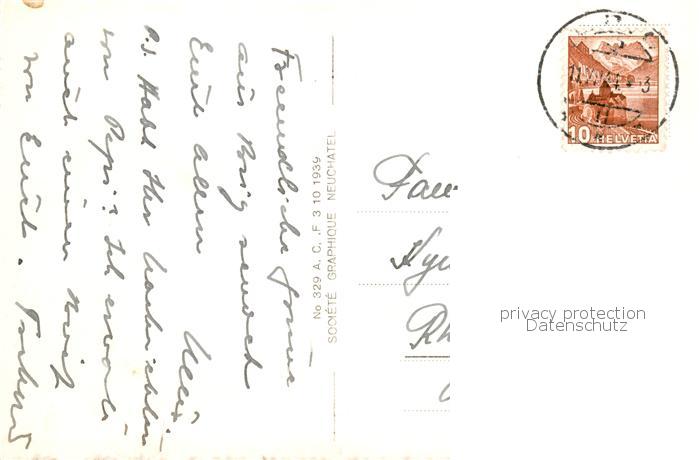 Freundliche Grüsse
aus Brig sendet
Euch allen
P.S. Habt Ihr Nachrichten
von Pepi? Ich erwarte
auch einen Brief
von Euch.
No 329 A. C. ,F 3 10 1939
SOCIÉTÉ GRAPHIQUE NEUCHATEL
10 HELVETIA
Fam
Rh
privacy protection
Datenschutz